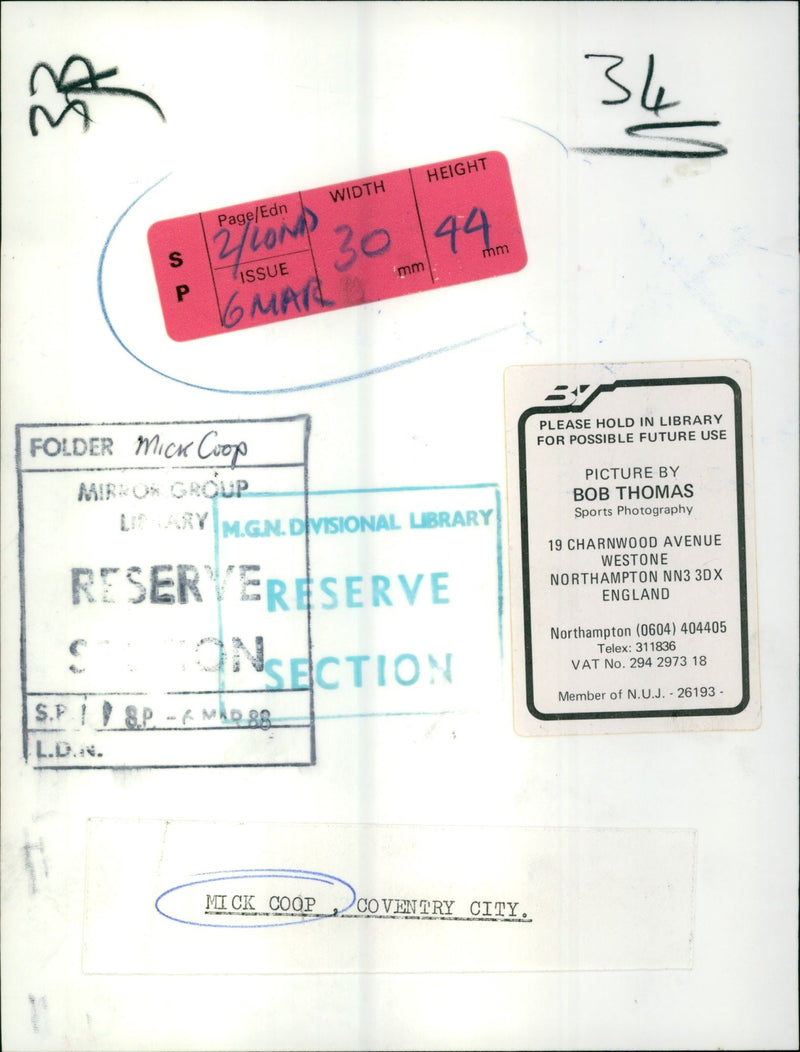 34
S P
Page/Edn
2/LOND
ISSUE
6 MAR
WIDTH
30 mm
HEIGHT
44 mm
FOLDER Mick Coop
MIRROR GROUP
LIBRARY
RESERVE
SECTION
S.P. S.P. - 6 MAR 88
L.D.N.
M.G.N. DIVISIONAL LIBRARY
RESERVE
SECTION
PLEASE HOLD IN LIBRARY
FOR POSSIBLE FUTURE USE
PICTURE BY
BOB THOMAS
Sports Photography
19 CHARNWOOD AVENUE
WESTONE
NORTHAMPTON NN3 3DX
ENGLAND
Northampton (0604) 404405
Telex: 311836
VAT No. 294 2973 18
Member of N.U.J. - 26193 -
MICK COOP , COVENTRY CITY.